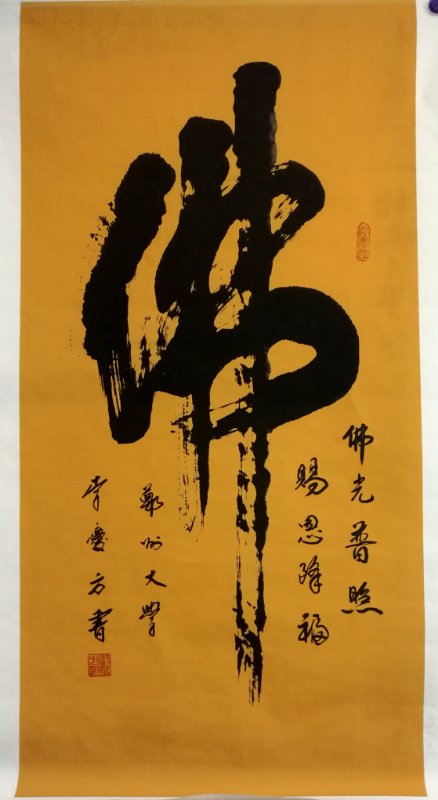 佛
佛光普照
賜恩降福
鄭州大學
李慶方書